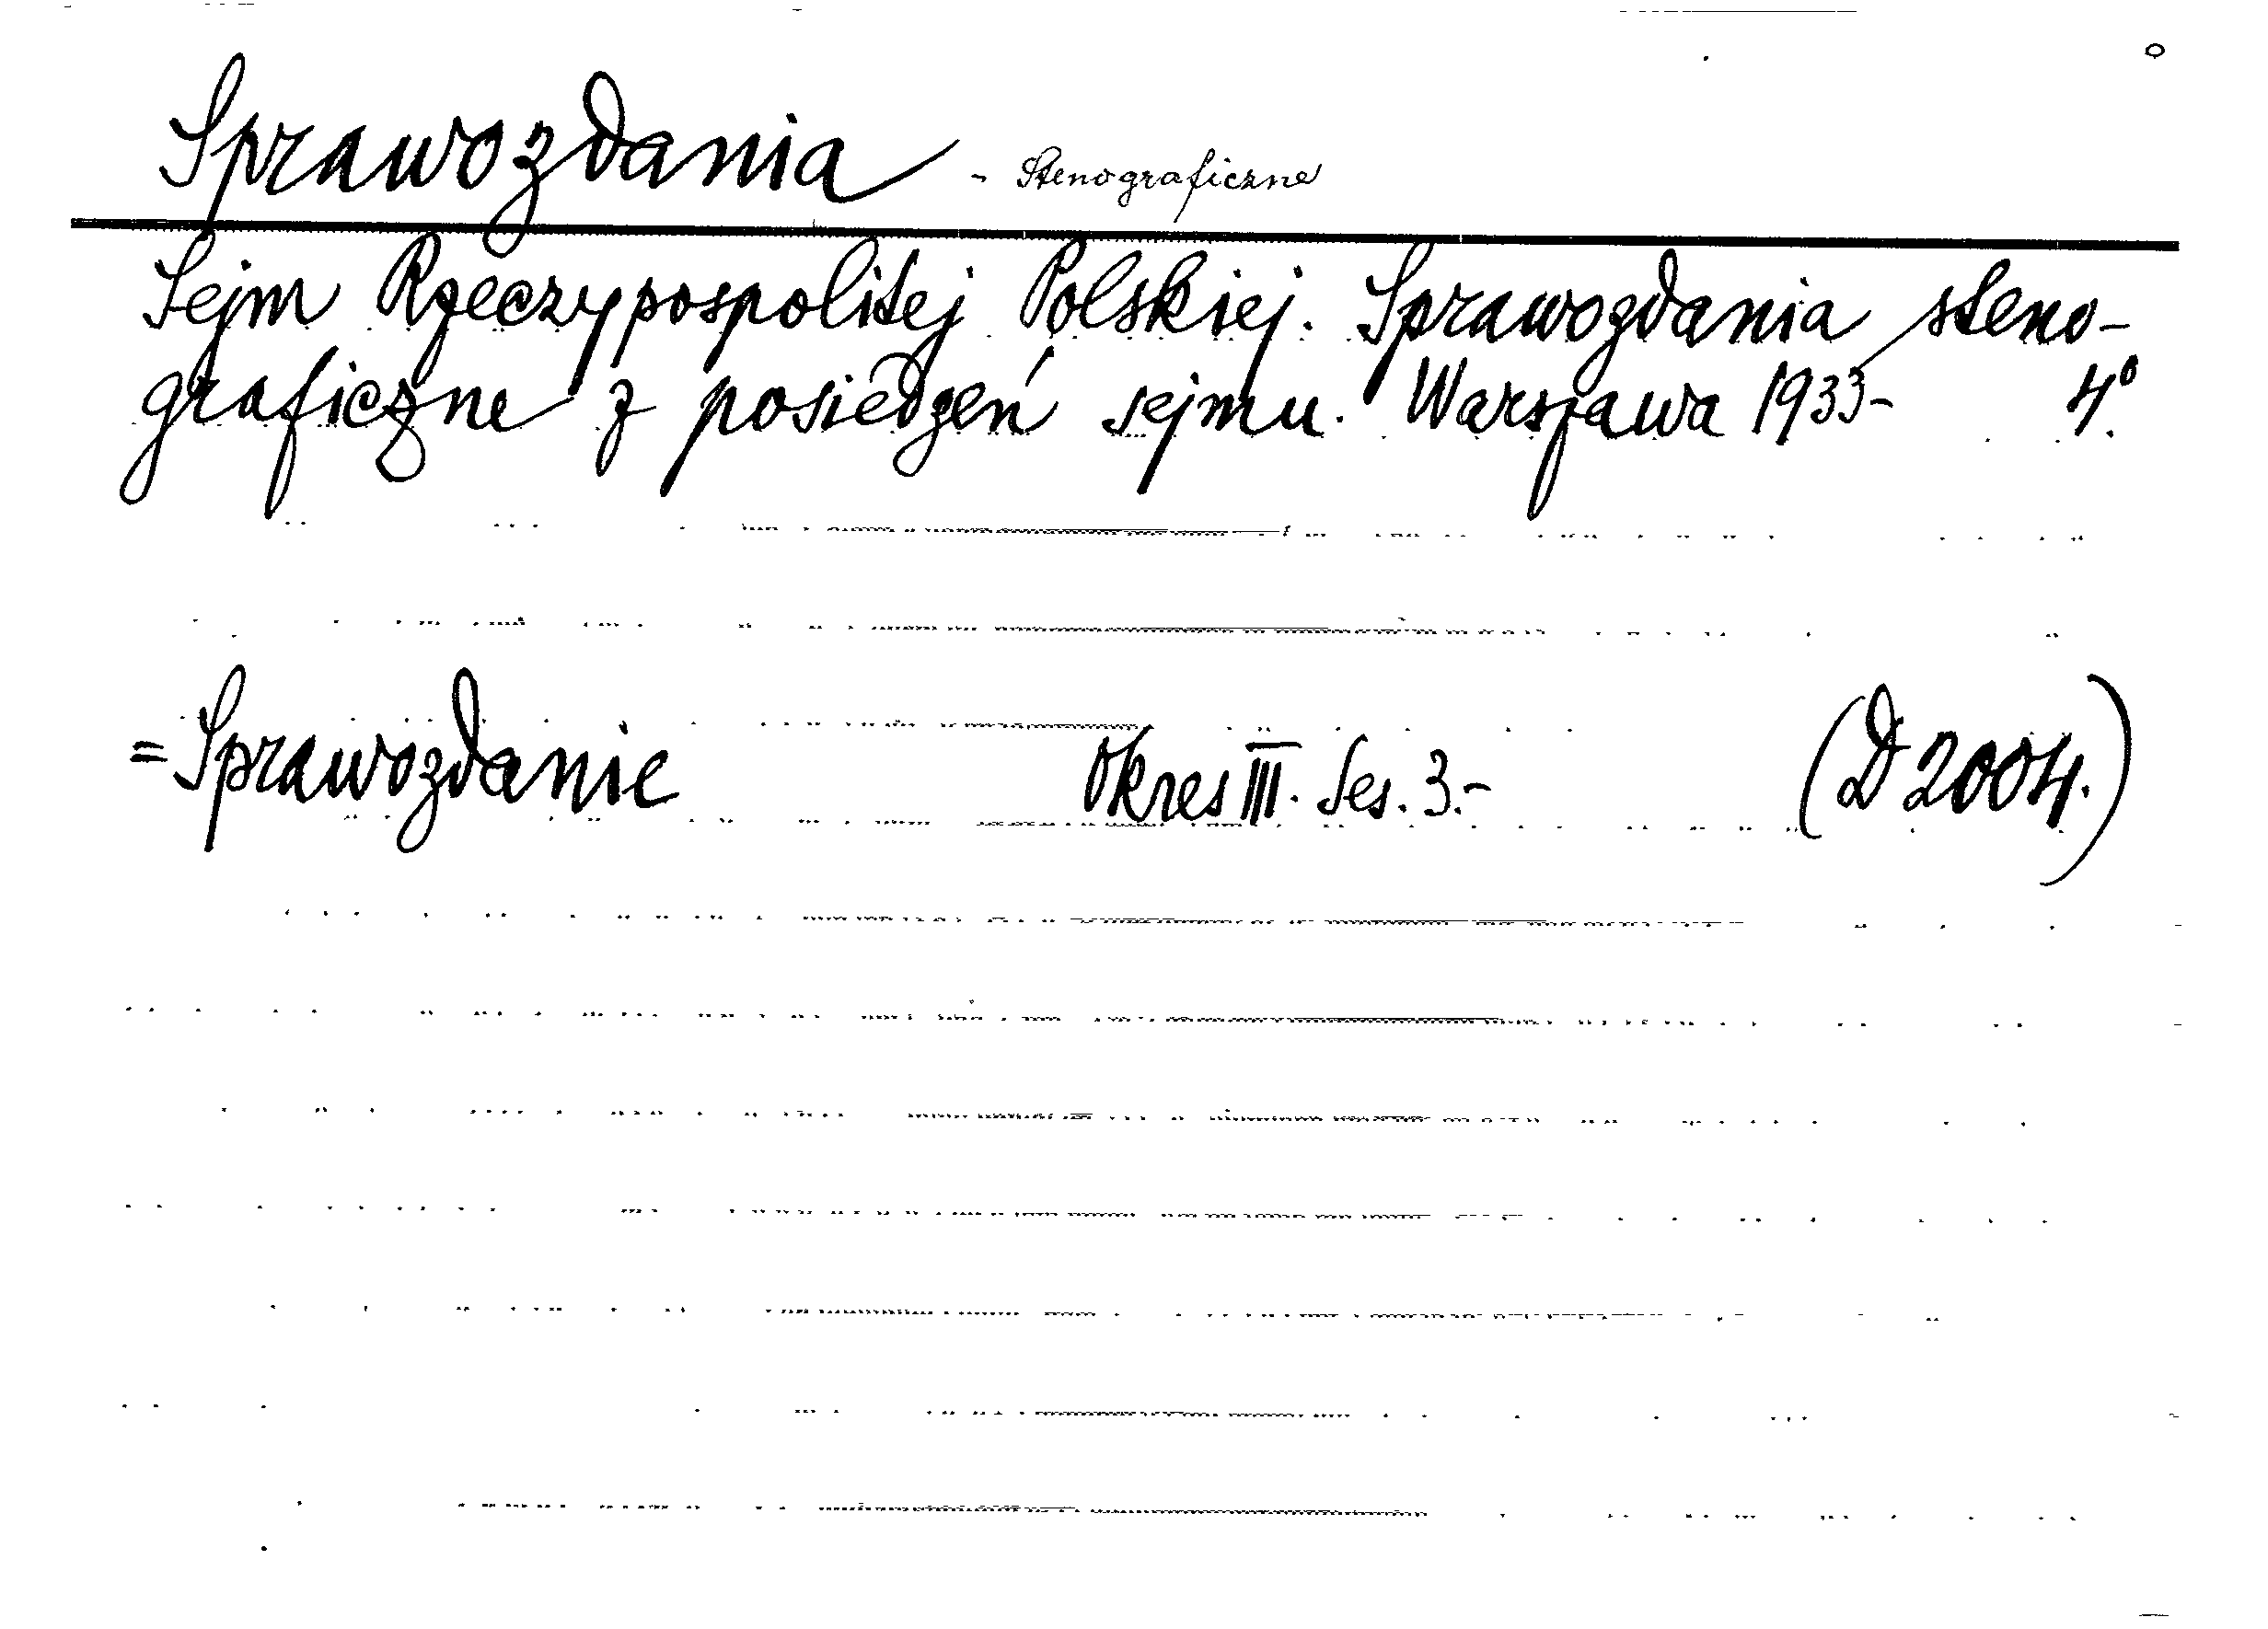 Sprawozdania - Stenograficzne
Sejm Rzeczypospolitej Polskiej. Sprawozdania steno-
graficzne z posiedzeń sejmu. Warszawa 1933- 4º.
=Sprawozdanie Okres III. Ses. 3.- (D 2004.)